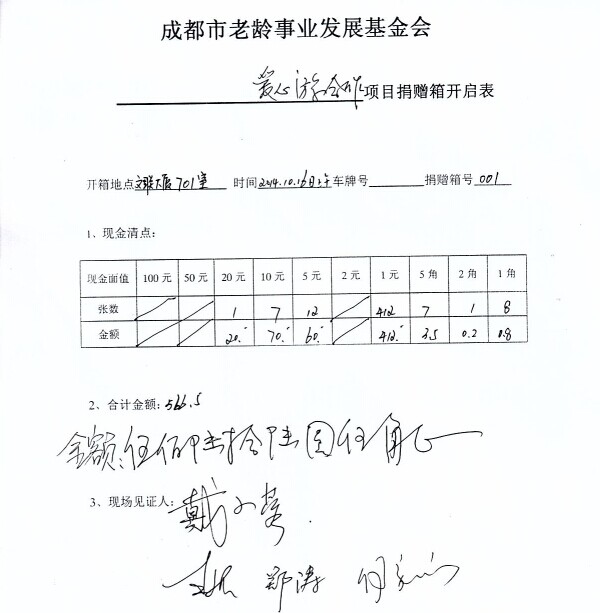 成都市老龄事业发展基金会
爱心 项目捐赠箱开启表
开箱地点 大厦701室 时间 2014.10.16日上午 车牌号 捐赠箱号 001
1、现金清点:
现金面值 100元 50元 20元 10元 5元 2元 1元 5角 2角 1角
张数 1 7 12 412 7 1 8
金额 20. 70. 60. 412. 3.5 0.2 0.8
2、合计金额: 566.5
金额:伍佰陆拾陆圆伍角正
3、现场见证人: 戴
郑涛 何